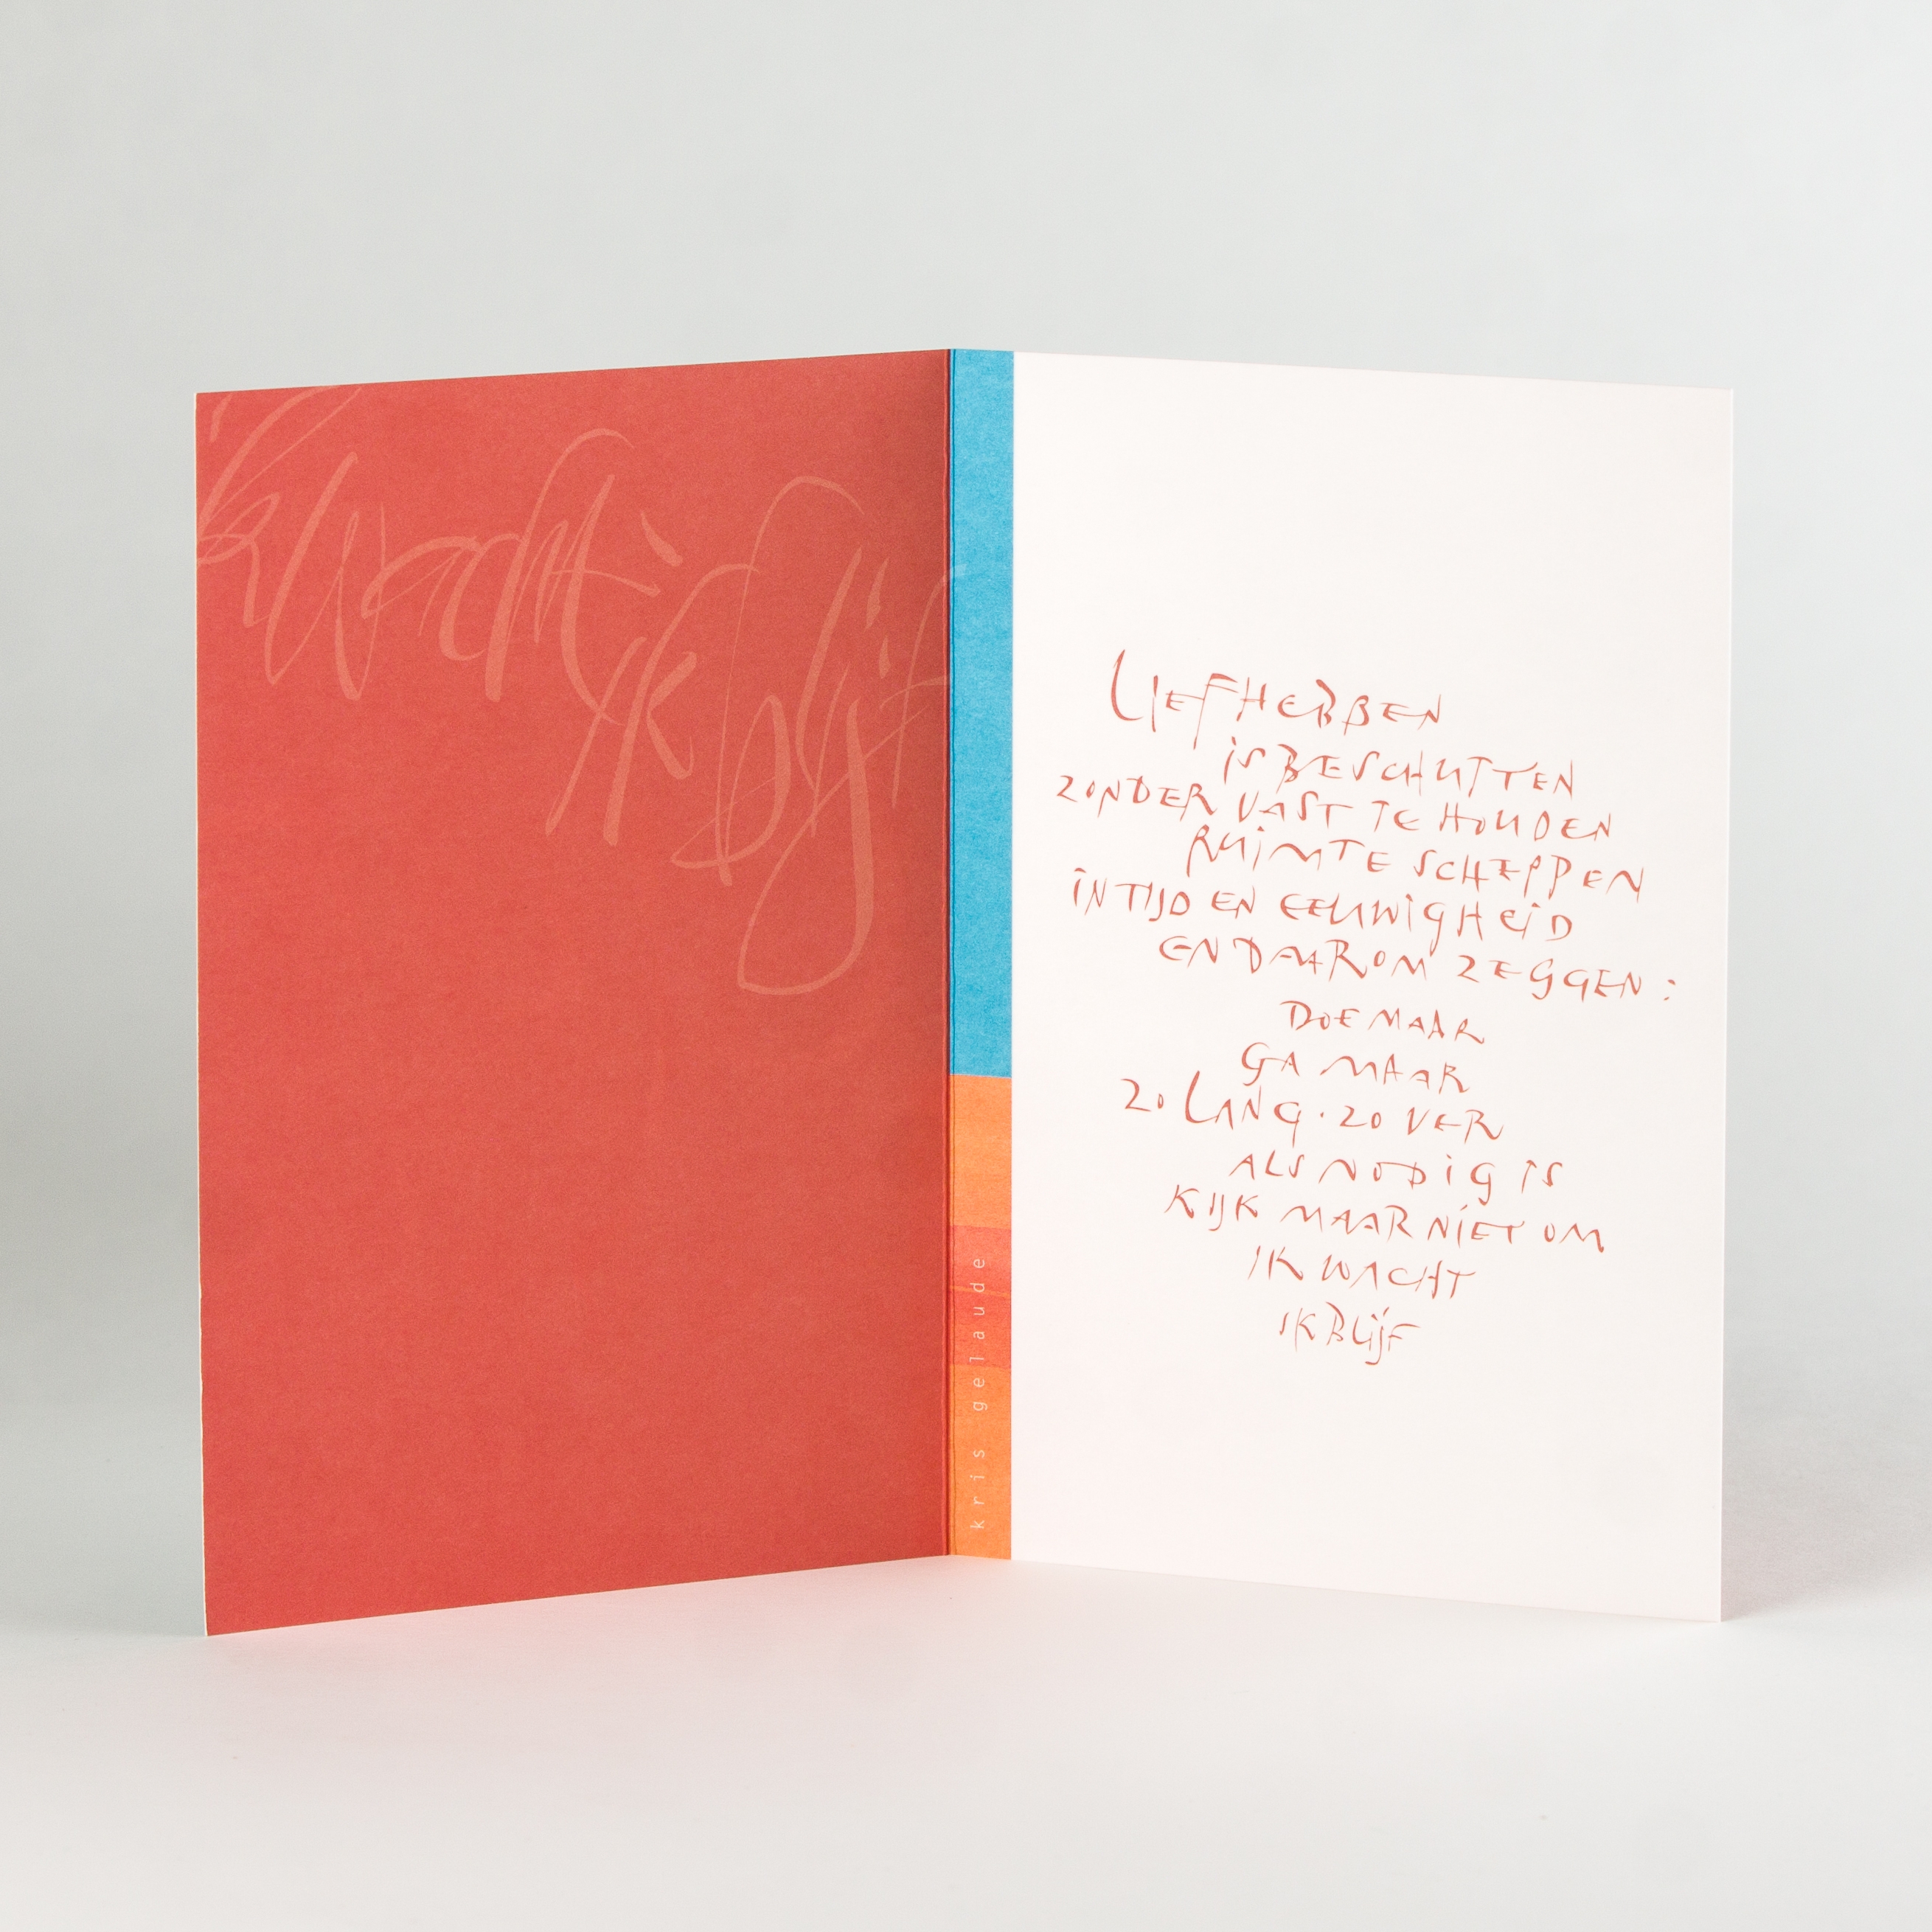 ik wacht
ik blijf
kris gelaude
LIEFHEBBEN
IS BESCHUTTEN
ZONDER VAST TE HOUDEN
RUIMTE SCHEPPEN
IN TIJD EN EEUWIGHEID
EN DAAROM ZEGGEN:
DOE MAAR
GA MAAR
ZO LANG · ZO VER
ALS NODIG IS
KIJK MAAR NIET OM
IK WACHT
IK BLIJF